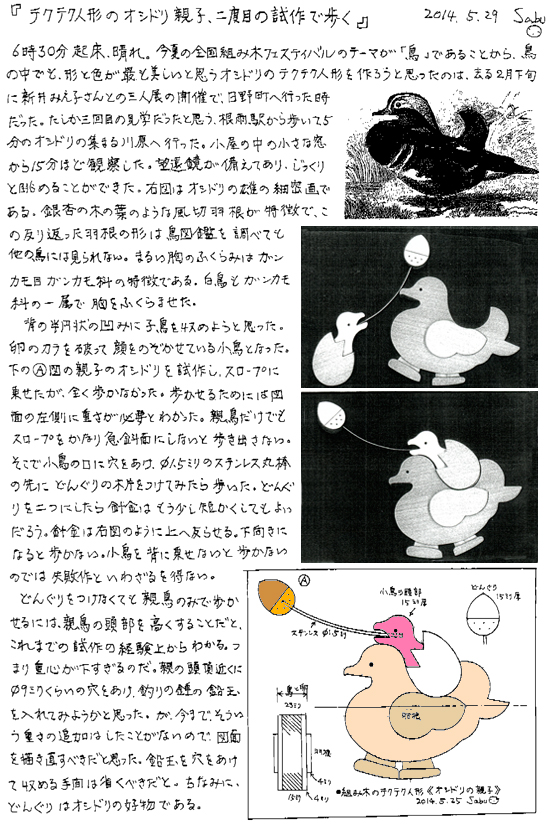 『テクテク人形のオシドリ親子、二度目の試作で歩く』 2014.5.29 Sabu
6時30分起床、晴れ。今夏の全国組み木フェスティバルのテーマが「鳥」であることから、鳥
の中でも、形と色が最も美しいと思うオシドリのテクテク人形を作ろうと思ったのは、去る2月下旬
に新井みえ子さんとの三人展の開催で、日野町へ行った時
だった。たしか三回目の見学だったと思う、根雨駅から歩いて5
分のオシドリの集まる川原へ行った。小屋の中の小さな窓
から15分ほど観察した。望遠鏡が備えてあり、じっくり
と眺めることができた。右図はオシドリの雄の細密画で
ある。銀杏の木の葉のような風切羽根が特徴で、こ
の反り返った羽根の形は鳥図鑑を調べても
他の鳥には見られない。まるい胸のふくらみはガン
カモ目ガンカモ科の特徴である。白鳥もガンカモ
科の一属で胸をふくらませた。
背の半円状の凹みに子鳥を4×のようと思った。
卵のカラを破って顔をのぞかせている小鳥となった。
下のⒶ図の親子のオシドリを試作し、スロープに
乗せたが、全く歩かなかった。歩かせるためには図
面の左側に重さが必要とわかった。親鳥だけでも
スロープをかなり急斜面にしないと歩き出さない。
そこで小鳥の口に穴をあけ、Φ1.5ミリのステンレス丸棒
の先にどんぐりの木片をつけてみたら歩いた。どんぐ
りを二つにしたら針金はもう少し短かくしてもよい
だろう。針金は右図のように上へ反らせる。下向きに
なると歩かない。小鳥を背に乗せないと歩かない
のでは失敗作といわざるを得ない。
どんぐりをつけなくても親鳥のみで歩か
せるには、親鳥の頭部を高くすることだと、
これまでの試作の経験上からわかる。つ
まり重心が下すぎるのだ。親の頭頂近くに
Φ9ミリくらいの穴をあけ、釣りの錘の鉛玉
を入れてみようかと思った。が、今まで、そうい
う重さの追加はしたことがないので、図面
を描き直すべきだと思った。鉛玉を穴をあけ
て収める手間は省くべきだと。ちなみに、
どんぐりはオシドリの好物である。
Ⓐ
小鳥の頭部
15ミリ厚
どんぐり
15ミリ厚
ステンレス Φ1.5ミリ
羽根
15ミリ
4ミリ
4ミリ
●組み木のテクテク人形《オシドリの親子》
2014.5.25 Sabu